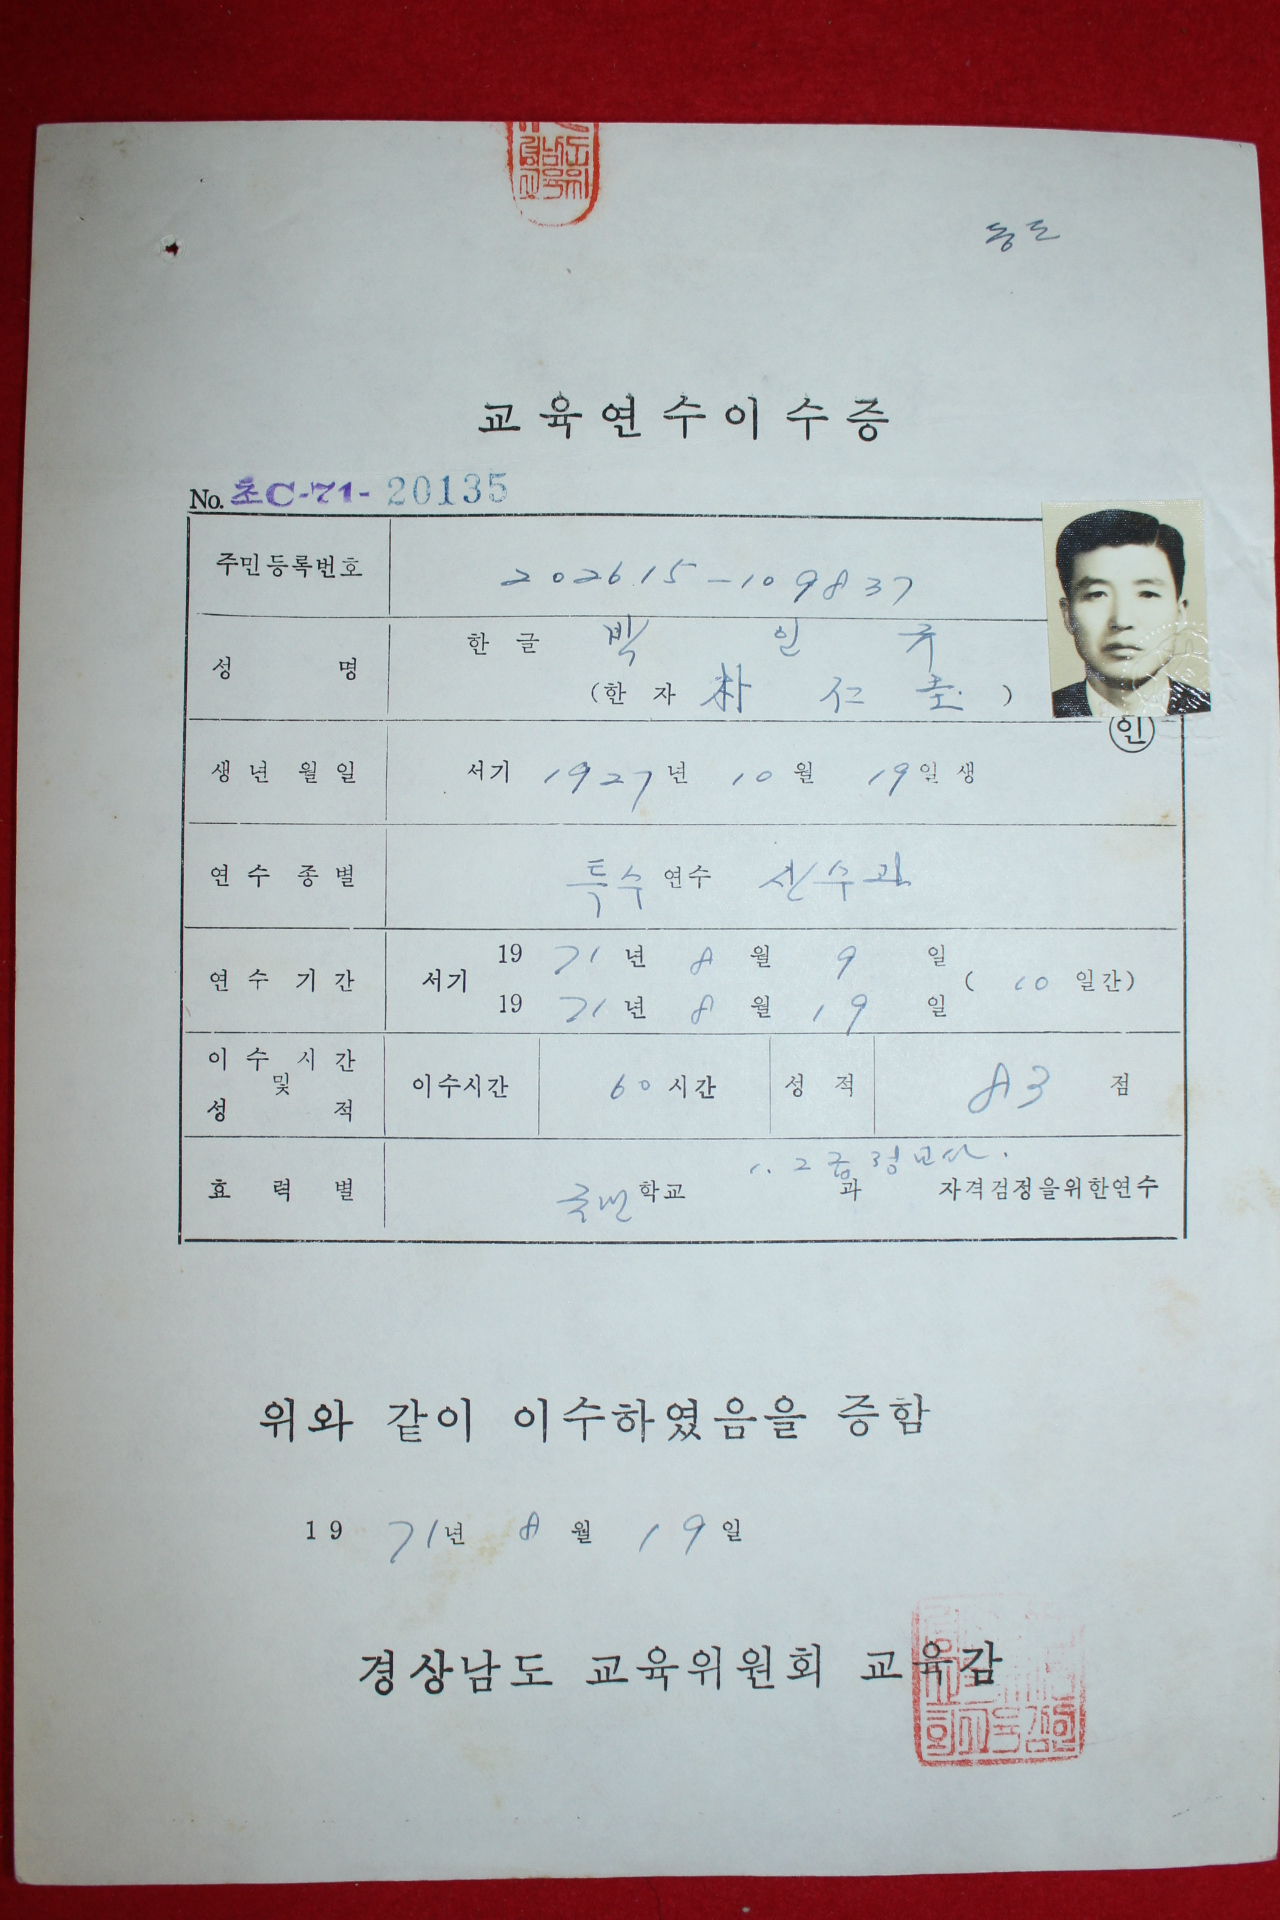 교육연수이수증
No. 초C-71- 20135
주민등록번호 202615-109837
성 명 한 글 박 인 규
(한 자 朴 仁 圭 )
인
생년 월일 서기 1927년 10월 19일 생
연수 종별 특수 연수 산수과
연수 기간 서기 19 71년 8월 9일
19 71년 8월 19일 ( 10 일간)
이수 시간 및 성 적 이수시간 60 시간 성 적 83 점
1. 2급 정교사.
효 력 별 국민 학교 과 자격검정을위한연수
위와 같이 이수하였음을 증함
19 71년 8월 19일
경상남도 교육위원회 교육감